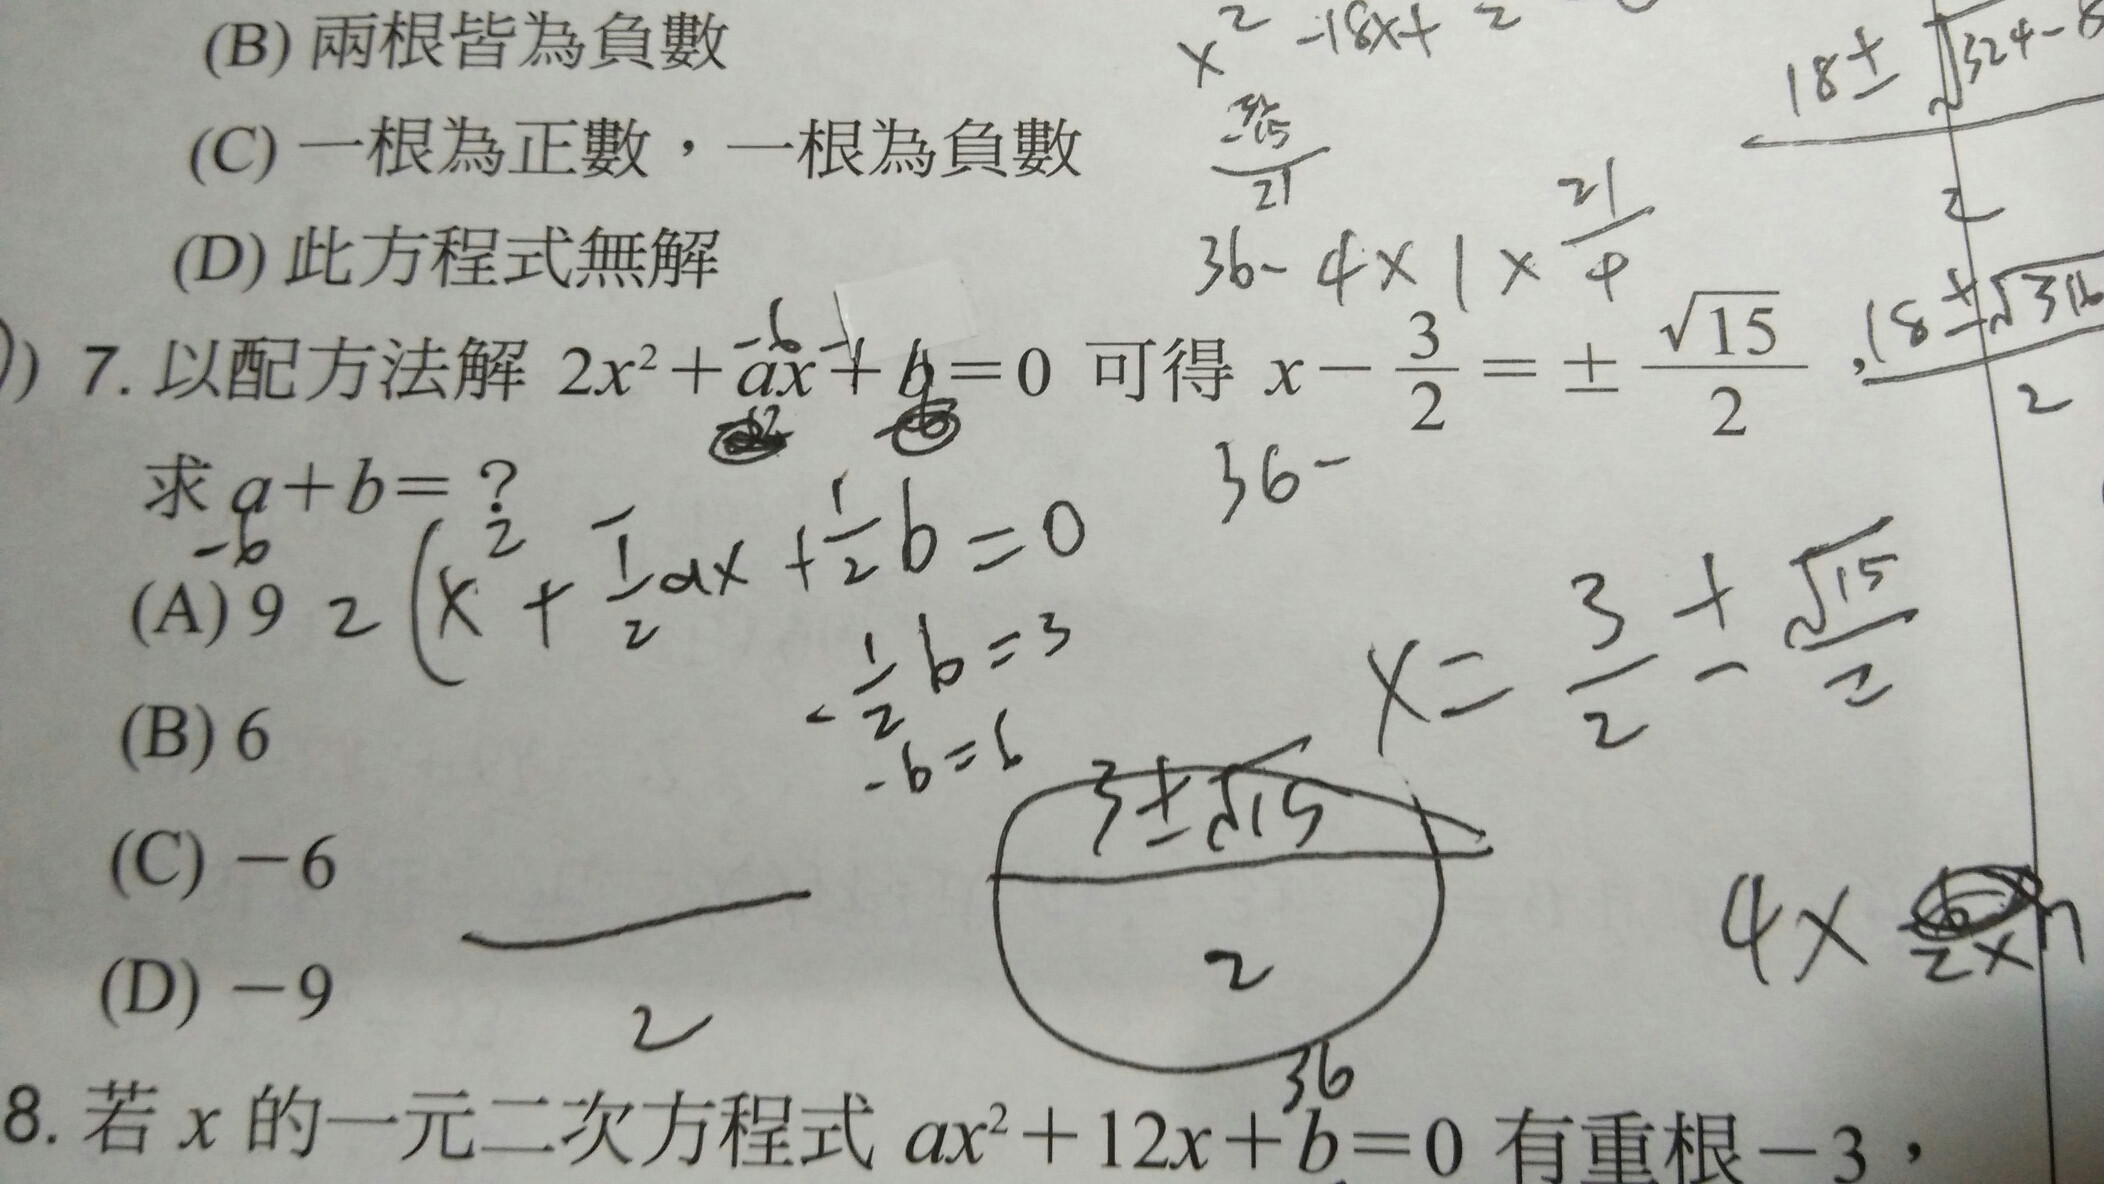 (B) 兩根皆為負數
(C) 一根為正數，一根為負數
(D) 此方程式無解
7. 以配方法解 2x²+ax+b=0 可得 x-3/2=±√15/2，
求 a+b=？
(A) 9
(B) 6
(C) -6
(D) -9
8. 若 x 的一元二次方程式 ax²+12x+b=0 有重根-3，
x² -18x+
21
36- 4×1×21/4
36-
18±√324-8
2
18±√316
2
-6
-6
2(x²+1/2ax+1/2b=0
-1/2b=3
-b=6
x=3/2±√15/2
3±√15
2
2
4×
36